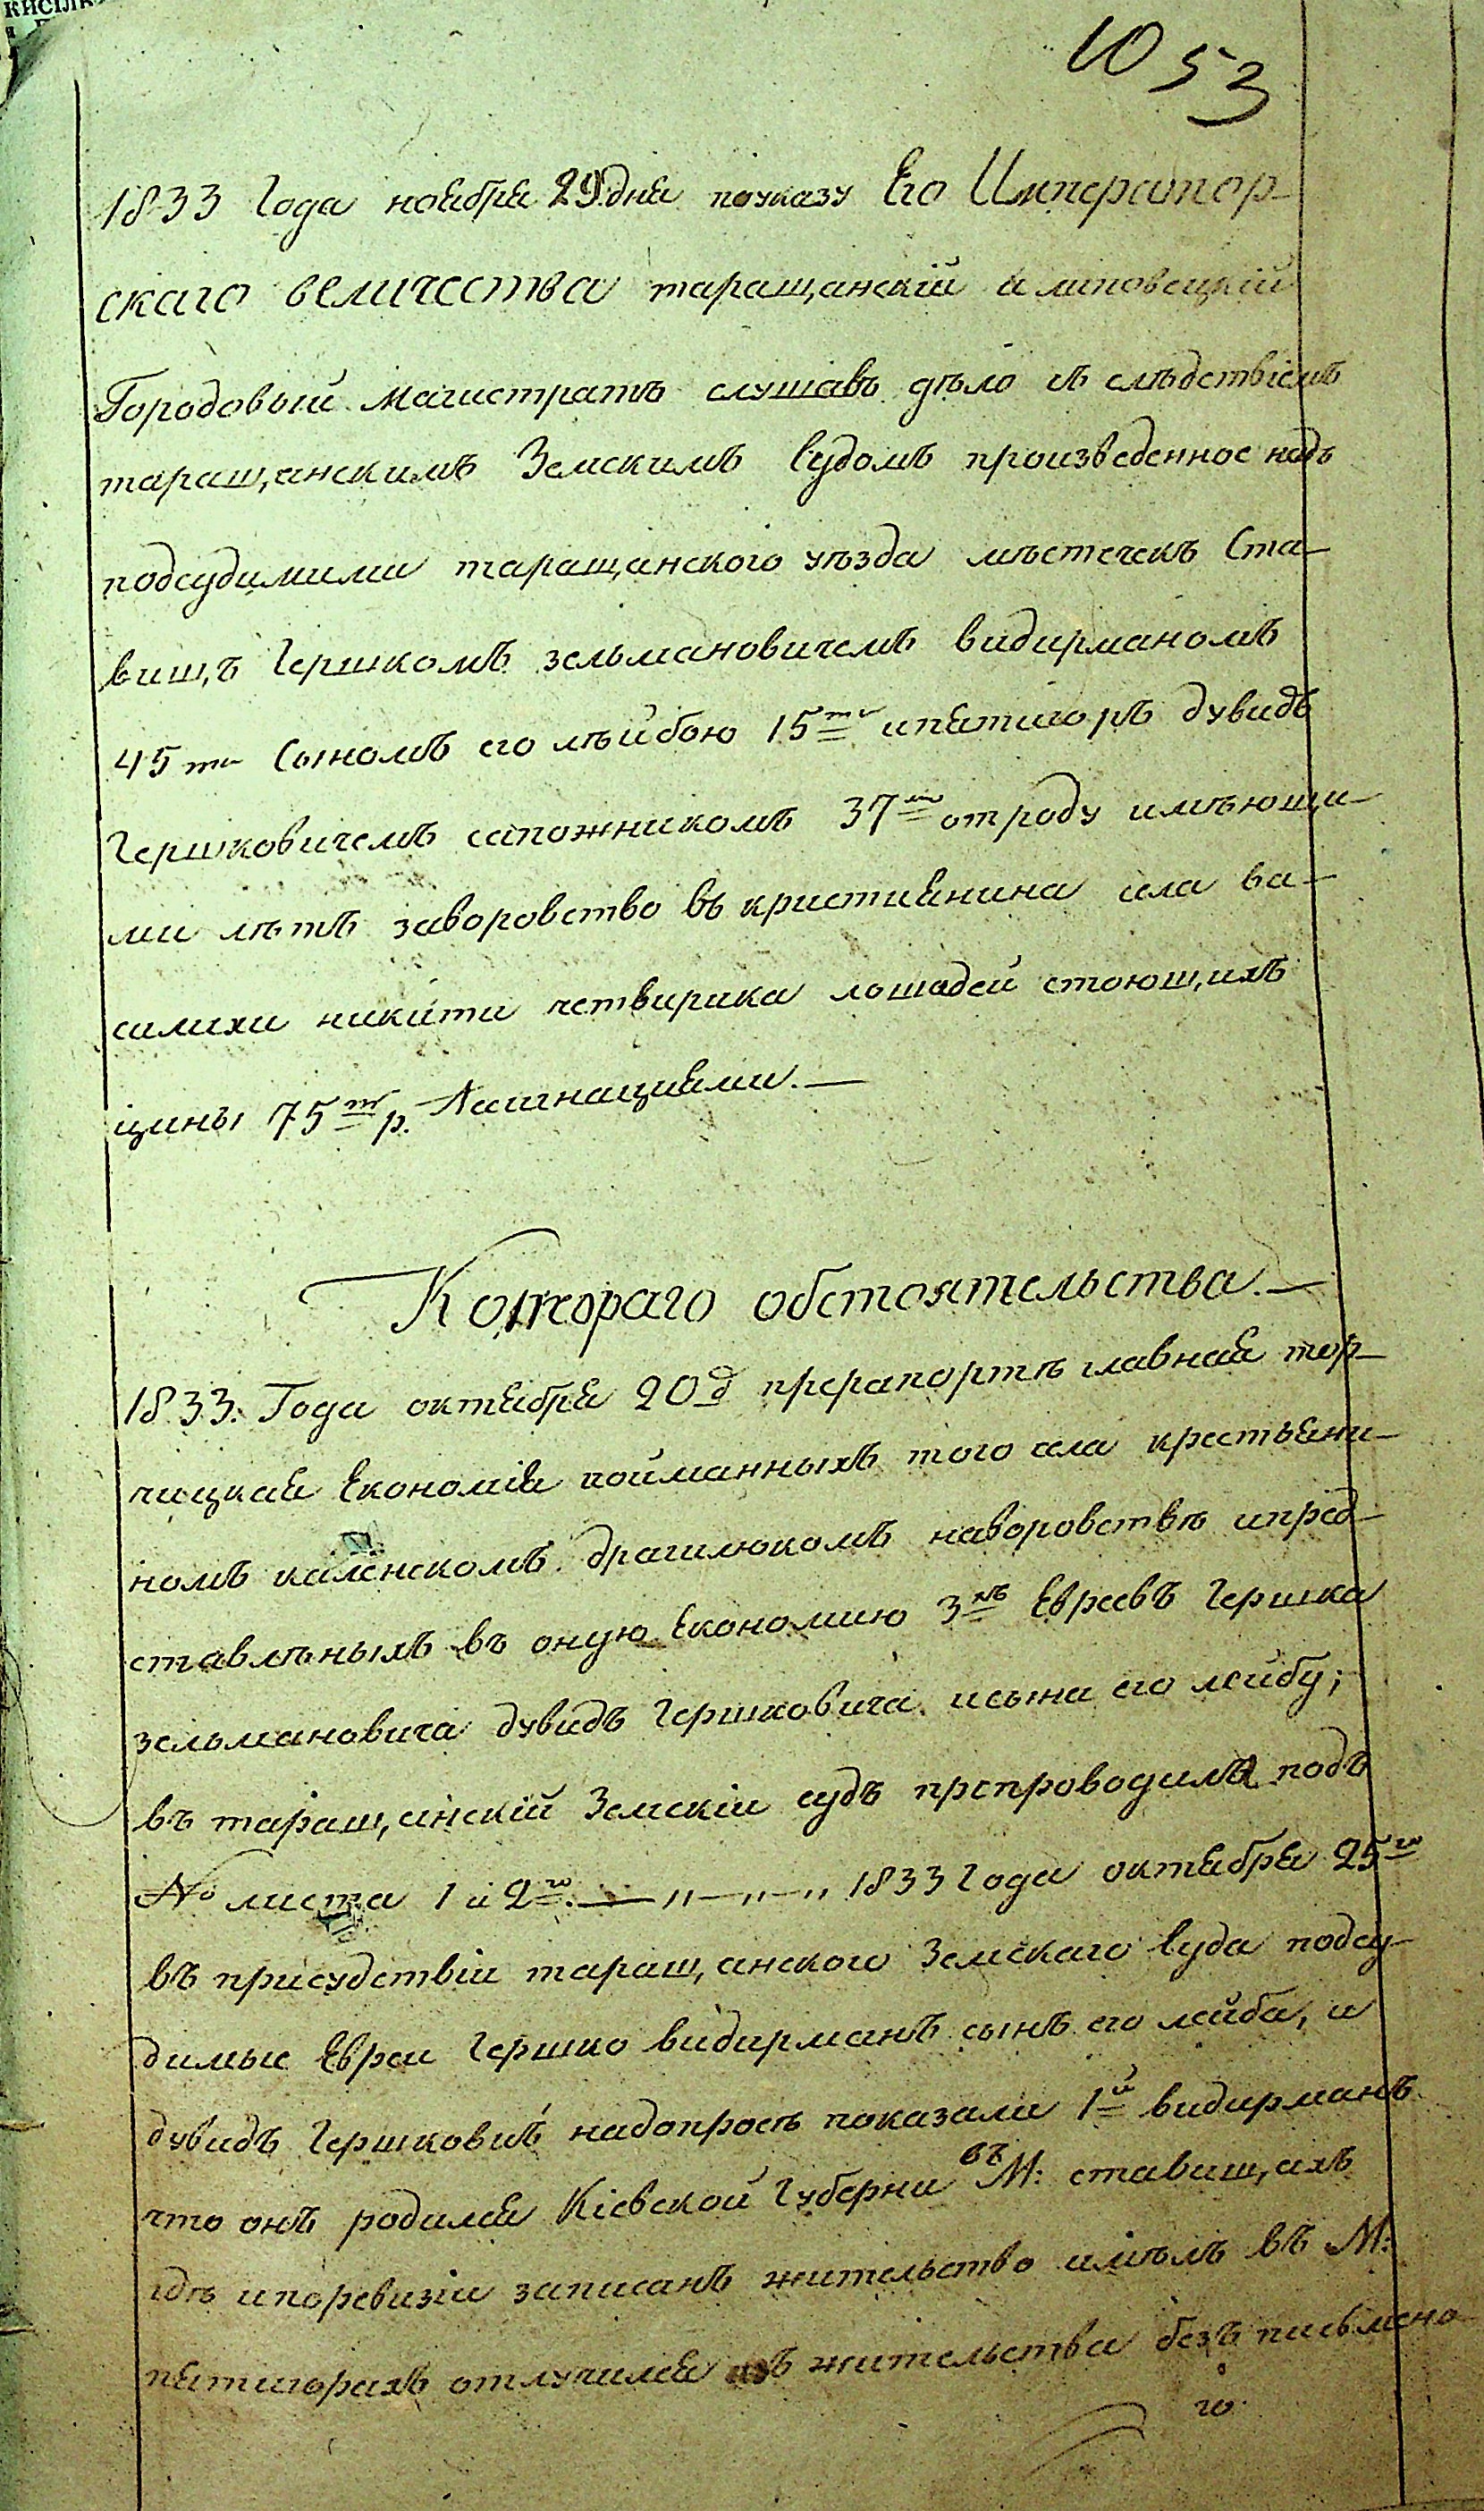 10 53
1833 Года ноября 29 дня поуказу Его Император-
скаго величества таращанскій и липовецкій
Городовый магистратъ слушавъ дѣло съ слѣдствіемъ
таращанскимъ Земскимъ Судомъ произведенное надъ
подсудимими таращанского уѣзда мѣстечекъ Ста-
вищъ Гершкомъ зельмановичемъ видирманомъ
45ти Сыномъ его лѣйбою 15ти ипятигоръ дувидъ
Гершковичемъ сапожникомъ 37ми отроду имѣющи-
ми лѣтъ заворовство въ кристиянина села ва-
силихи никити четвирика лошадей стоющихъ
цины 75ти р. Ассигнациями.—
Котораго обстоятельства.—
1833. Года октября 20д прерапортѣ главная тор-
чицкая Економія пойманныхъ того села крестьяни-
номъ каленскомъ драгилюкомъ наворовствѣ ипред-
ставлѣныхъ въ оную Економию 3хъ Евреевъ Гершка
зельмановича дувидъ Гершковича исына его лейбу;
въ таращанскій Земскіи судъ препроводила подъ
№ листа 1 и 2го.— „—„—„ 1833 Года октября 25го
въ присудствіи таращанского Земскаго Суда подсу-
димые Евреи Гершко видирманъ сынъ его лейба, и
дувидъ Гершковичъ надопросѣ показали 1й видирманъ
что онъ родился Кіевской Губерни въ М: ставищахъ
гдѣ ипоревизіи записанъ жительство имѣлъ въ М:
пятигорахъ отлучился изъ жительства безъ письмено
го